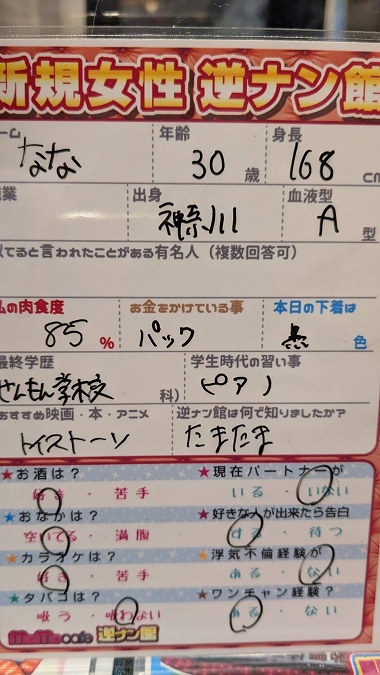 新規女性 逆ナン館
ーム 年齢 身長
なな 30 歳 168 cm
業 出身 血液型
神奈川 A 型
てると言われたことがある有名人（複数回答可）
私の肉食度 お金をかけている事 本日の下着は
85 % パック 黒 色
最終学歴 学生時代の習い事
せんもん学校 科) ピアノ
おすすめ映画・本・アニメ 逆ナン館は何で知りましたか?
トイストーリー たまたま
★お酒は? ★現在パートナーが
好き・苦手 いる・いない
★おなかは? ★好きな人が出来たら告白
空いてる・満腹 する・待つ
★カラオケは? ★浮気不倫経験が
好き・苦手 ある・ない
★タバコは? ★ワンチャン経験?
吸う・吸わない ある・ない
cafe 逆ナン館